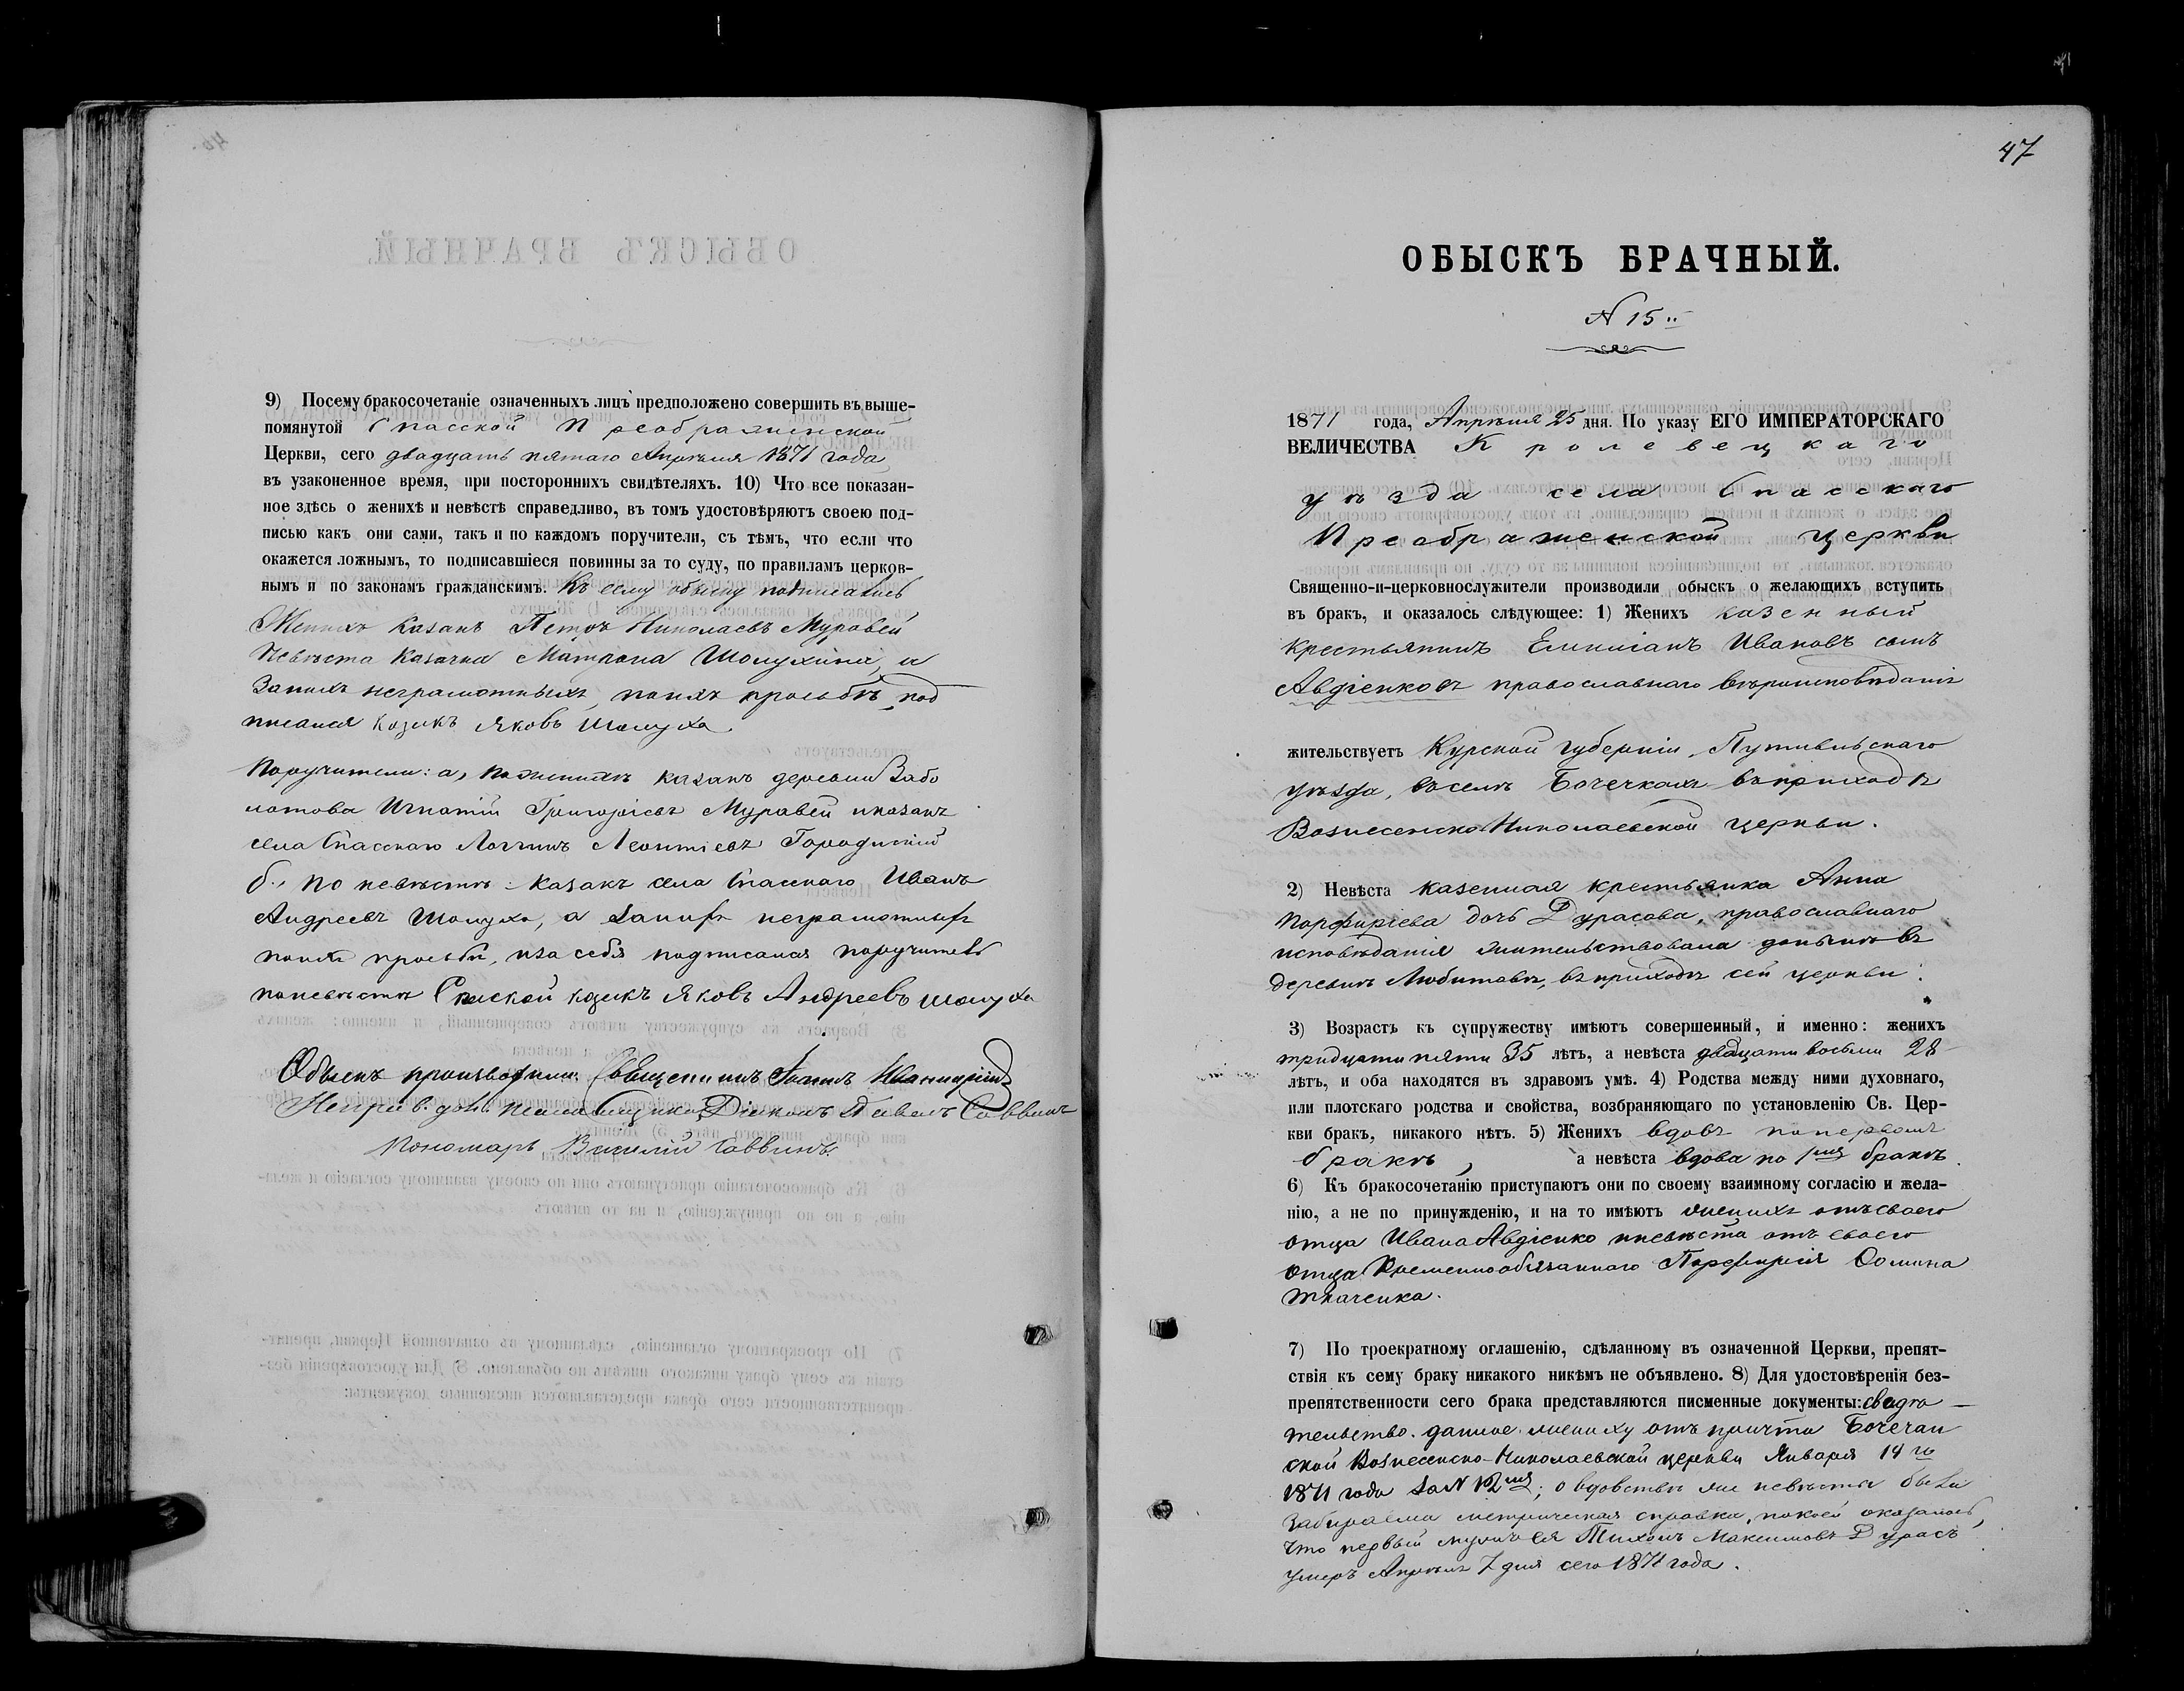 9) Посему бракосочетаніе означенныхъ лицъ предположено совершить въ выше-
помянутой Спасской Преображенской
Церкви, сего двадцать пятаго Апрѣля 1871 года
въ узаконенное время, при постороннихъ свидѣтеляхъ. 10) Что все показан-
ное здѣсь о женихѣ и невѣстѣ справедливо, въ томъ удостовѣряютъ своею под-
писью какъ они сами, такъ и по каждомъ поручители, съ тѣмъ, что если что
окажется ложнымъ, то подписавшіеся повинны за то суду, по правиламъ церков-
нымъ и по законамъ гражданскимъ. Къ сему обыску подписались
Женихъ казакъ Петръ Николаевъ Муравей
Невѣста казачка Матрона Шолухина, а
занихъ неграмотныхъ, поихъ прозьбѣ под
писался козакъ Яковъ Шолуха
Поручители: а, поженихѣ казакъ деревни Забо
лотова Игнатій Григоріевъ Муравей иказакъ
села Спасскаго Логгинъ Леонтіевъ Городискій
б., по невѣстѣ: казакъ села Спасскаго Иванъ
Андреевъ Шолуха, а занихъ неграмотныхъ
поихъ прозьбѣ, иза себя подписался поручитель
поневѣстѣ Спаскай козакъ Яковъ Андреевъ шолуха
Обыскъ производили: Священникъ Іоаннъ
Діаконъ Павелъ Саввинъ
Пономарь Василій Саввинъ.
47
ОБЫСКЪ БРАЧНЫЙ.
N 15
1871 года, Апрѣля 25 дня. По указу ЕГО ИМПЕРАТОРСКАГО
ВЕЛИЧЕСТВА Кролевецкаго
уѣзда села Спасскаго
Преображенской церкви
Священно-и-церковнослужители производили обыскъ о желающихъ вступить
въ бракъ, и оказалось слѣдующее: 1) Женихъ казенный
крестьянинъ Емиліанъ Ивановъ сынъ
Авдіенковъ православнаго вѣроисповѣданія
жительствуетъ Курской губерніи, Путивльскаго
уѣзда, въселѣ Бочечкахъ въприходѣ
Вознесенско Николаевской церкви.
2) Невѣста казенная крестьянка Анна
Порфиріева дочь Дурасова, православнаго
исповѣданія жительствовала донынѣ въ
деревнѣ Любитовѣ, въ приходѣ сей церкви.
3) Возрастъ къ супружеству имѣютъ совершенный, и именно: женихъ
тридцати пяти 35 лѣтъ, а невѣста двадцати восьми 28
лѣтъ, и оба находятся въ здравомъ умѣ. 4) Родства между ними духовнаго,
или плотскаго родства и свойства, возбраняющаго по установленію Св. Цер-
кви бракъ, никакого нѣтъ. 5) Женихъ вдовъ попервомъ
бракѣ, а невѣста вдова по 1мъ бракѣ.
6) Къ бракосочетанію приступаютъ они по своему взаимному согласію и жела-
нію, а не по принужденію, и на то имѣютъ женихъ отъ своего
отца Ивана Авдіенко иневѣста отъ своего
отца Временнообязаннаго Порфирія Фомина
Ткаченка.
7) По троекратному оглашенію, сдѣланному въ означенной Церкви, препят-
ствія къ сему браку никакого никѣмъ не объявлено. 8) Для удостовѣренія без-
препятственности сего брака представляются писменные документы: свидѣ-
тельство. данное жениху отъ причта Бочечан
ской Вознесенско-Николаевской церкви Января 14го
1871 года за N 12мъ; о вдовствѣ же невѣсты была
забираема метрическая справка, покоей оказалось,
что первый мужъ ея Тихонъ Максимовъ Дурасъ
умеръ Апрѣля 7 дня сего 1871 года.